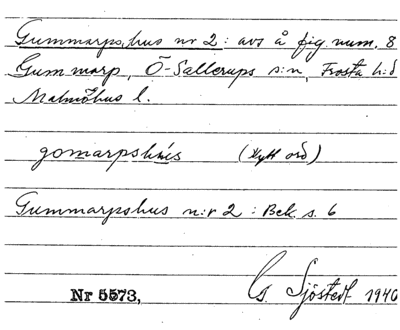 Gummarps hus nr 2: avs å fig. num. 8
Gummarp, Ö-Sallerups s:n, Frosta h:d
Malmöhus l.
gomarpshus (nytt ord)
Gummarpshus n:r 2: Bek. s. 6
Nr 5573, Sjöstedt 1940